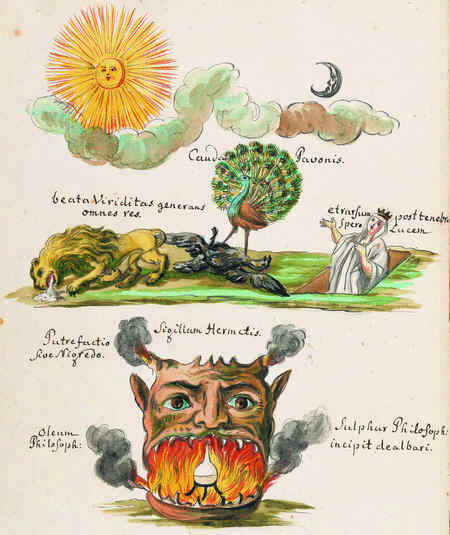 Cauda Pavonis.
beata Viriditas generans
omnes res.
et rursum post tenebras
Spero Lucem
Putrefactio
sive Nigredo.
Sigillum Hermetis.
Oleum
Philosoph:
Sulphur Philosoph:
incipit dealbari.